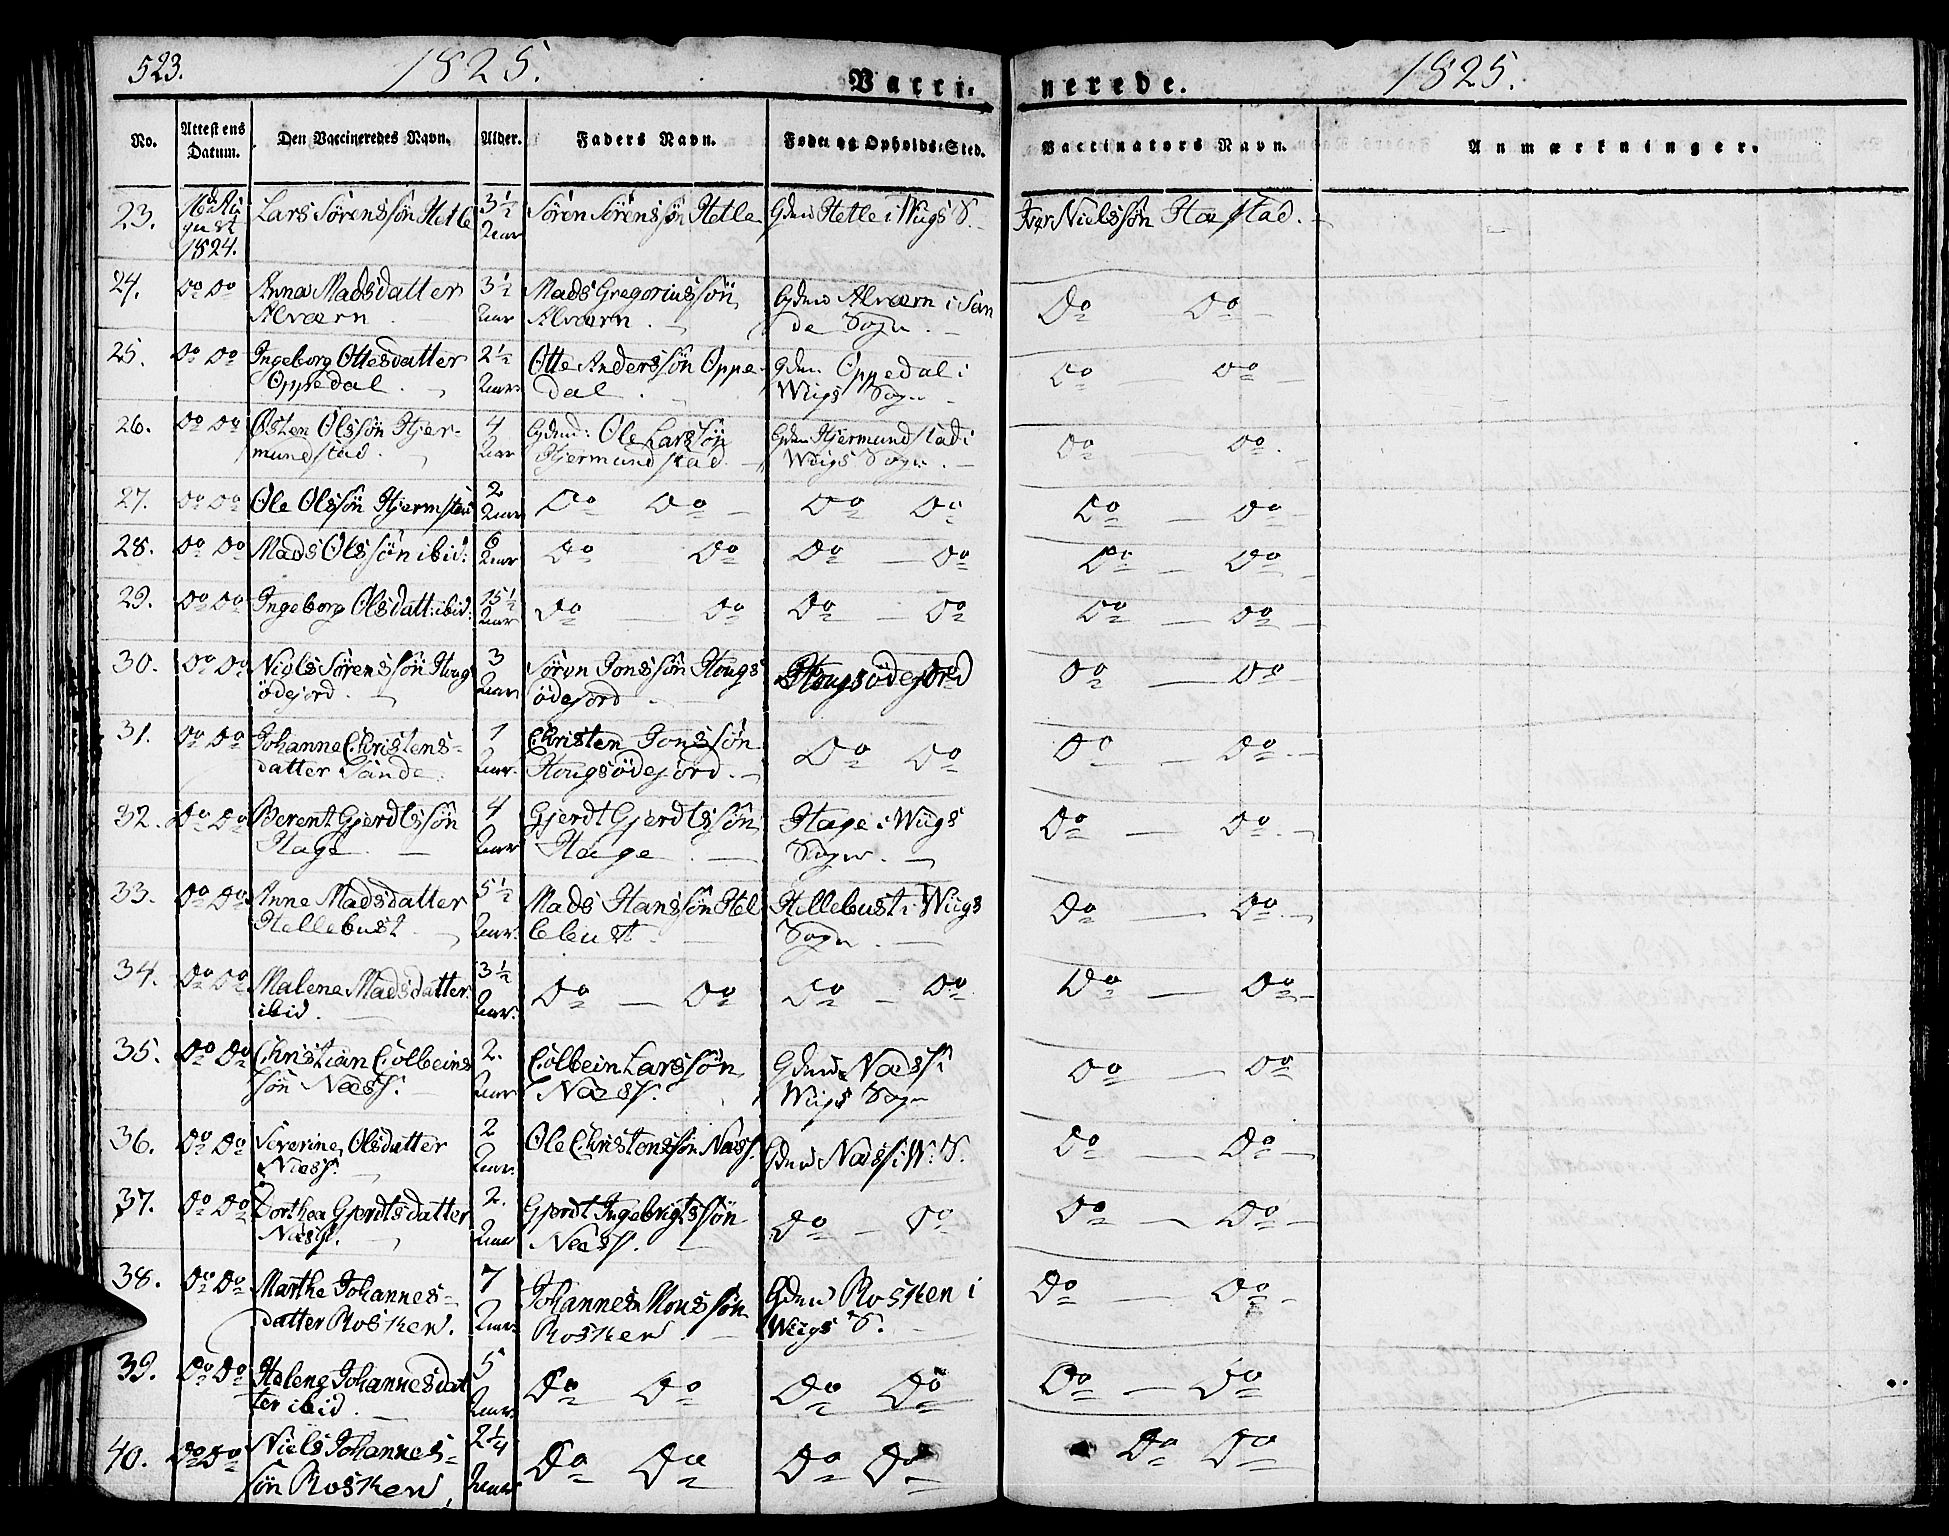 523. 1825. Vacci- nerede. 1825.
No. Attestens Datum. Den Vaccineredes Navn. Alder. Faders Navn. Føde- og Opholds-Sted. Vaccinators Navn. Anmærkninger.
23. 16de Au Lars Sörenssön Hetle 3½ Sören Sörenssön Hetle Gden Hetle i Wiigs S. Iver Nielssön Hastad.
gust Aar
1824.
24. Do Do Anna Madsdatter 3½ Mads Gregoriussön Gden Alværn i San Do Do
Alværn Aar Alværn de Sogn.
25. Do Do Ingeborg Ottesdatter 2½ Otte Anderssön Oppe- Gden Oppedal i Do Do
Oppedal. Aar dal. Wiigs Sogn
26. Do Do Östen Olssön Hjer- 4 Gdmd: Ole Larssön Gden Hjermundstad i Do Do
mundstad. Aar Hjermundstad. Wiigs Sogn.
27. Do Do Ole Olssön Hjermsted 2 Aar Do Do Do Do Do Do
28. Do Do Mads Olssön ibid: 6 Aar Do Do Do Do Do Do
29. Do Do Ingeborg Olsdatt: ibid: 15½ Aar Do Do Do Do Do Do
30. Do Do Niels Sörenssön Houg 3 Sören Jonssön Hougs Hougsödejord Do Do
ödejord. Aar ödejord
31. Do Do Johanne Christens- 1 Christen Jonssön Do Do Do Do
datter Sande. Aar. Hougsödejord.
32. Do Do Berent Gjerdtssön 4 Gjerdt Gjerdtssön Hage i Wiigs Do Do
Hage. Aar Hage. Sogn.
33. Do Do Anne Madsdatter 5½ Mads Hanssön Hel Hellebust i Wiigs Do Do
Hellebust Aar. lebust. Sogn.
34. Do Do Malene Madsdatter 3½ Do Do Do Do Do Do
ibid. Aar.
35. Do Do Christian Colbeins 2. Colbein Larssön Gden Næss i Do Do
sön Næss. Aar Næss. Wiigs Sogn
36. Do Do Severine Olsdatter 2 Ole Christenssön Næss. Gden Næss i W. S. Do Do
Næss. Aar.
37. Do Do Dorthea Gjerdtsdatter 2. Gjerdt Ingebrigtssön Do Do Do Do
Næss. Aar Næss.
38. Do Do Marthe Johannes- 7 Johannes Monssön Gden Rosken i Do Do
datter Rosken. Aar. Rosken Wiigs S.
39. Do Do Helene Johannesdat 5 Do Do Do Do Do Do
ter ibid. Aar.
40. Do Do Niels Johannes- 2¼ Do Do Do Do Do Do
sön Rosken Aar